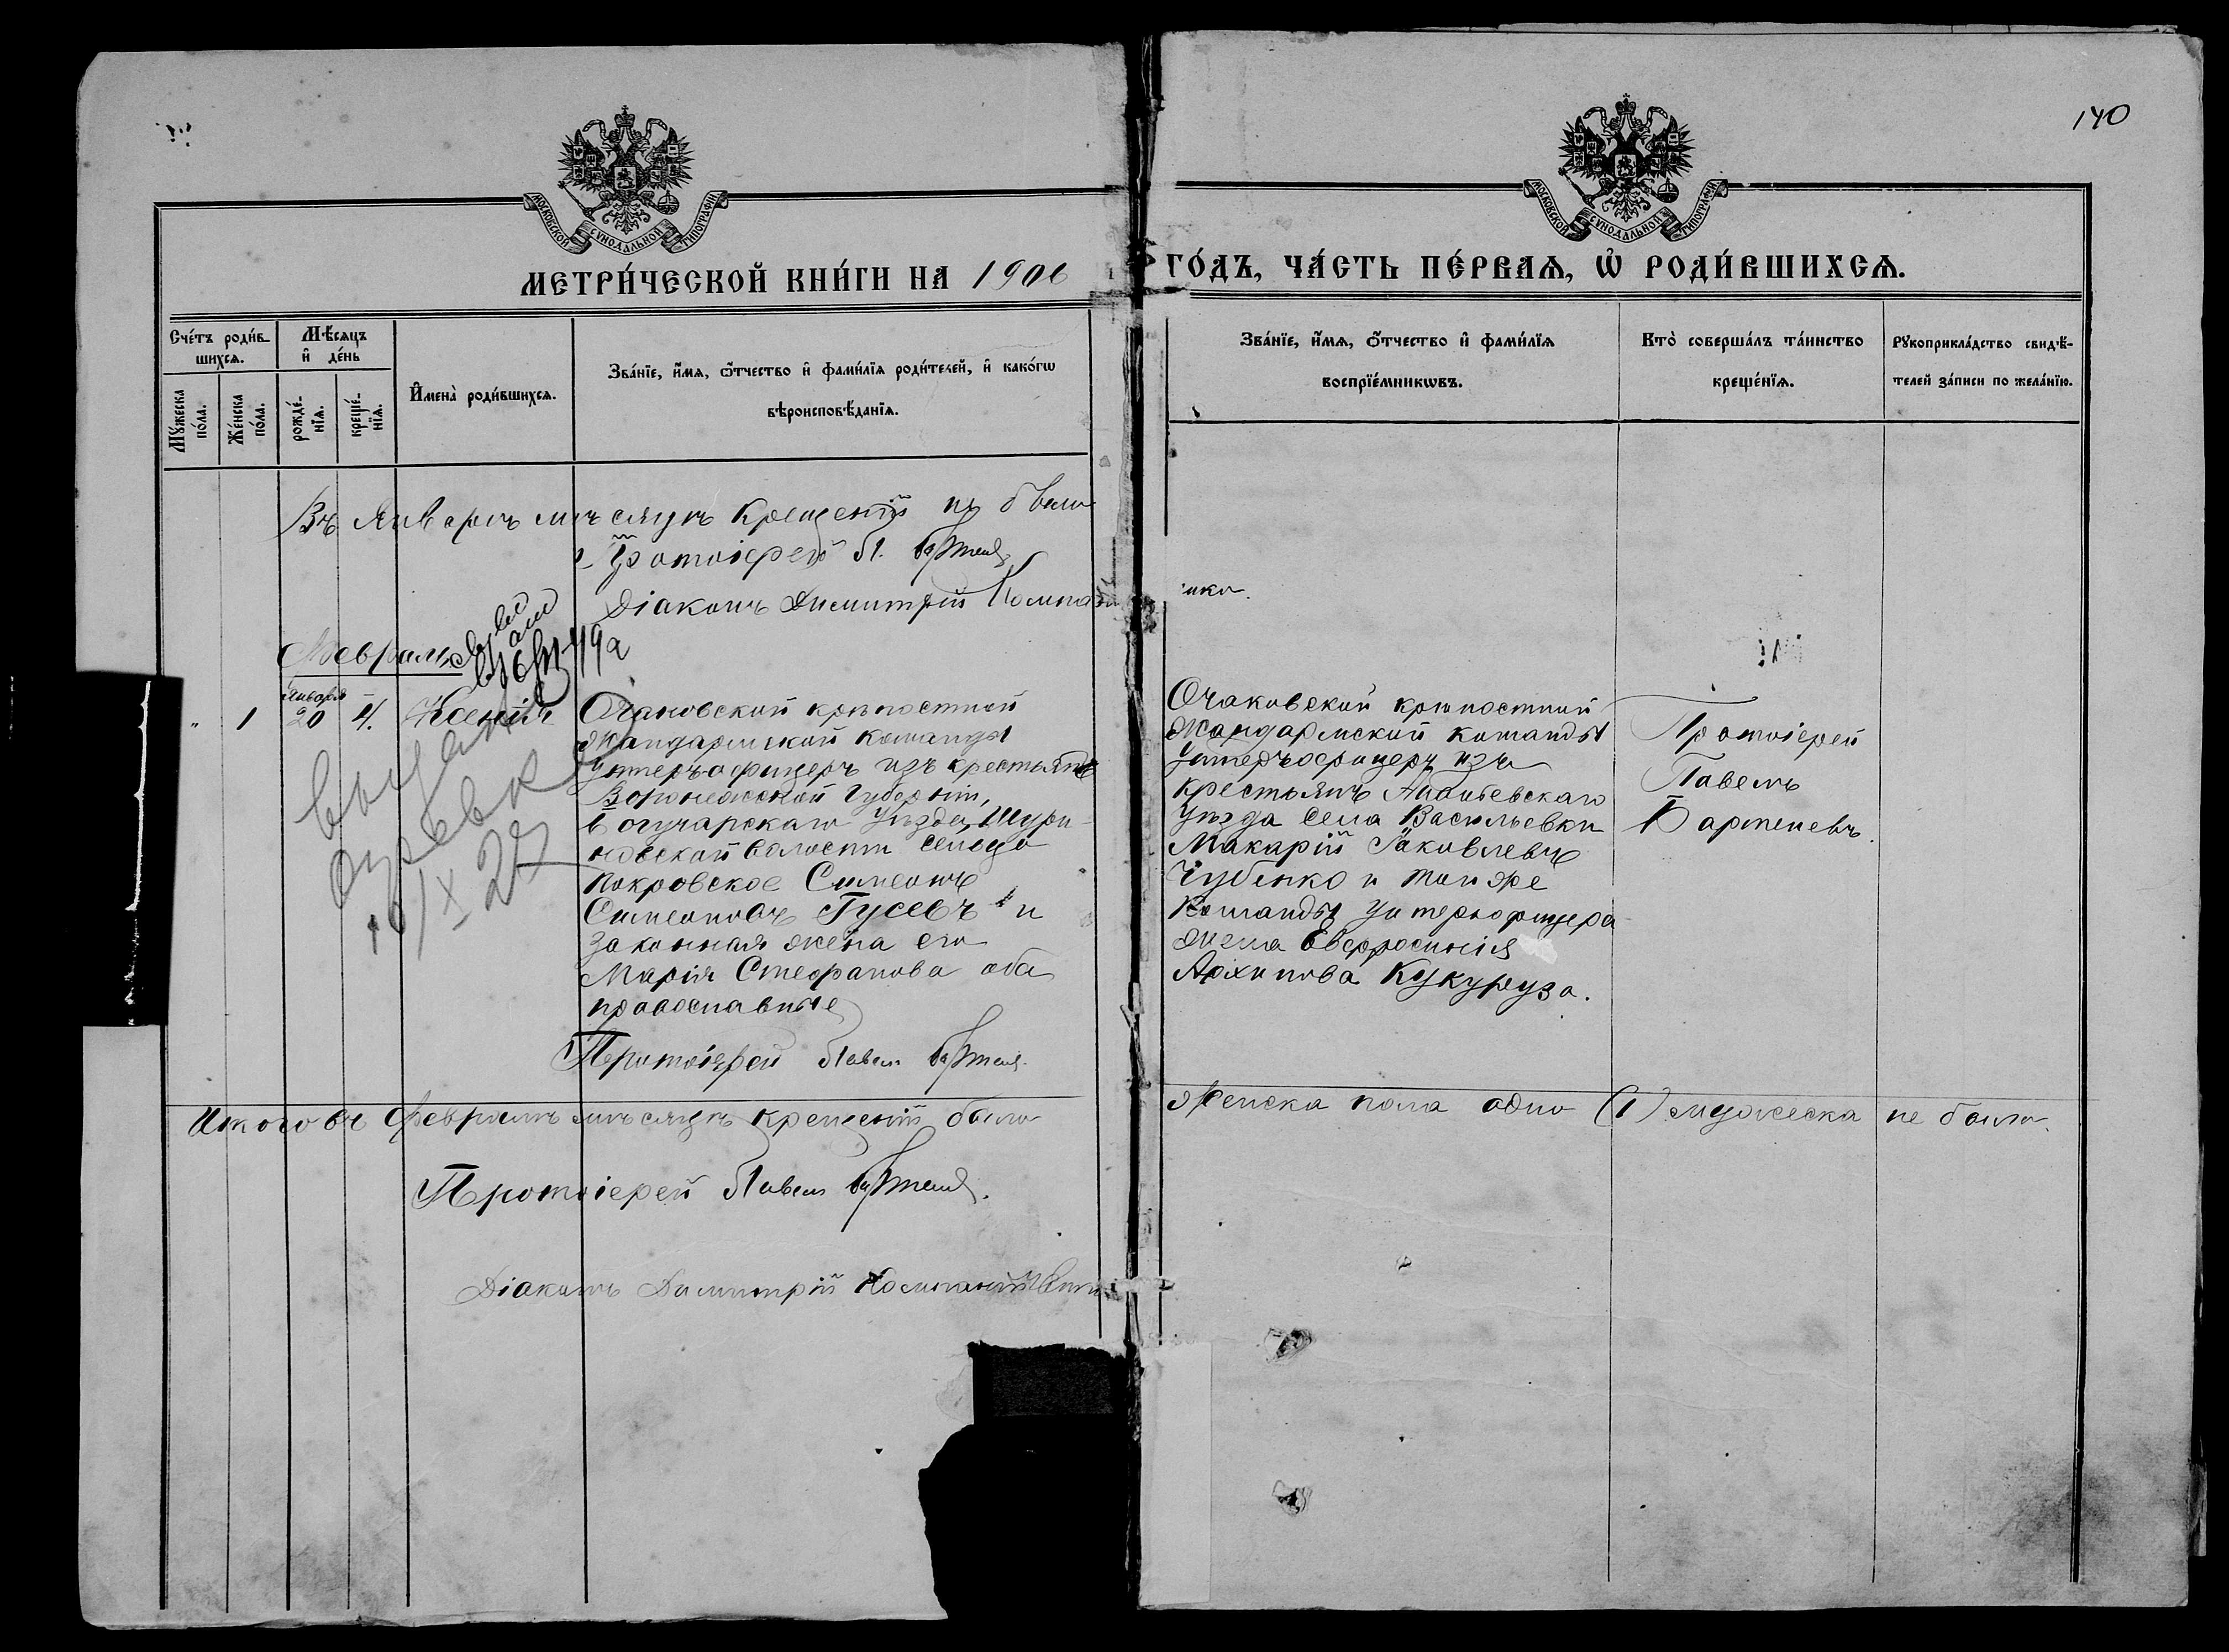 140
МОСКОВСКОЙ СУНОДАЛЬНОЙ ТИПОГРАФІИ
МОСКОВСКОЙ СУНОДАЛЬНОЙ ТИПОГРАФІИ
МЕТРИ́ЧЕСКОЙ КНИ́ГИ НА 1906
ГО́ДЪ, ЧА́СТЬ ПЕ́РВАѦ, Ѡ҆ РОДИ́ВШИХСѦ.
Сче́тъ роди́в-
шихсѧ.
Мꙋ́жеска по́ла.
Же́нска по́ла.
Мѣ́сѧцъ
и҆ де́нь
рожде́-нїѧ.
креще́-нїѧ.
И҆мена̀ роди́вшихсѧ.
Зва́нїе, и҆́мѧ, ѻ҆́тчество и҆ фами́лїѧ роди́телей, и҆ како́гѡ
вѣроисповѣ́данїѧ.
Зва́нїе, и҆́мѧ, ѻ҆́тчество и҆ фами́лїѧ
воспрїе́мникѡвъ.
Кто̀ соверша́лъ та́инство
креще́нїѧ.
Рꙋкоприкла́дство свидѣ́-
телей за́писи по жела́нїю.
Въ Январѣ мѣсяцѣ крещеній не было
Протоіерей П.
Діаконъ Димитрій
Февраль
" 1 Января 20 4. Ксенія
Очаковской крѣпостной
Жандармской команды
Унтеръ-офицеръ изъ крестьянъ
Воронежской Губерніи,
Богучарскаго Уѣзда,
волости
Покровское Симеонъ
Симеоновъ Гусевъ и
законная жена его
Марія Стефанова оба
православные
Протоіерей Павел
Очаковской крѣпостной
Жандармской команды
Унтеръ-офицеръ изъ
крестьянъ
Уѣзда села Васильевки
Макарій Іаковлевъ
Чубенко и той же
Команды унтеръ-офицера
жена Евфросинія
Архипова Кукуруза.
Протоіерей
Павелъ
Бартеневъ.
Итого въ Февралѣ мѣсяцѣ крещеній было
Женска пола одно (1) мужеска не было.
Протоіерей Павел
Діаконъ Димитрій